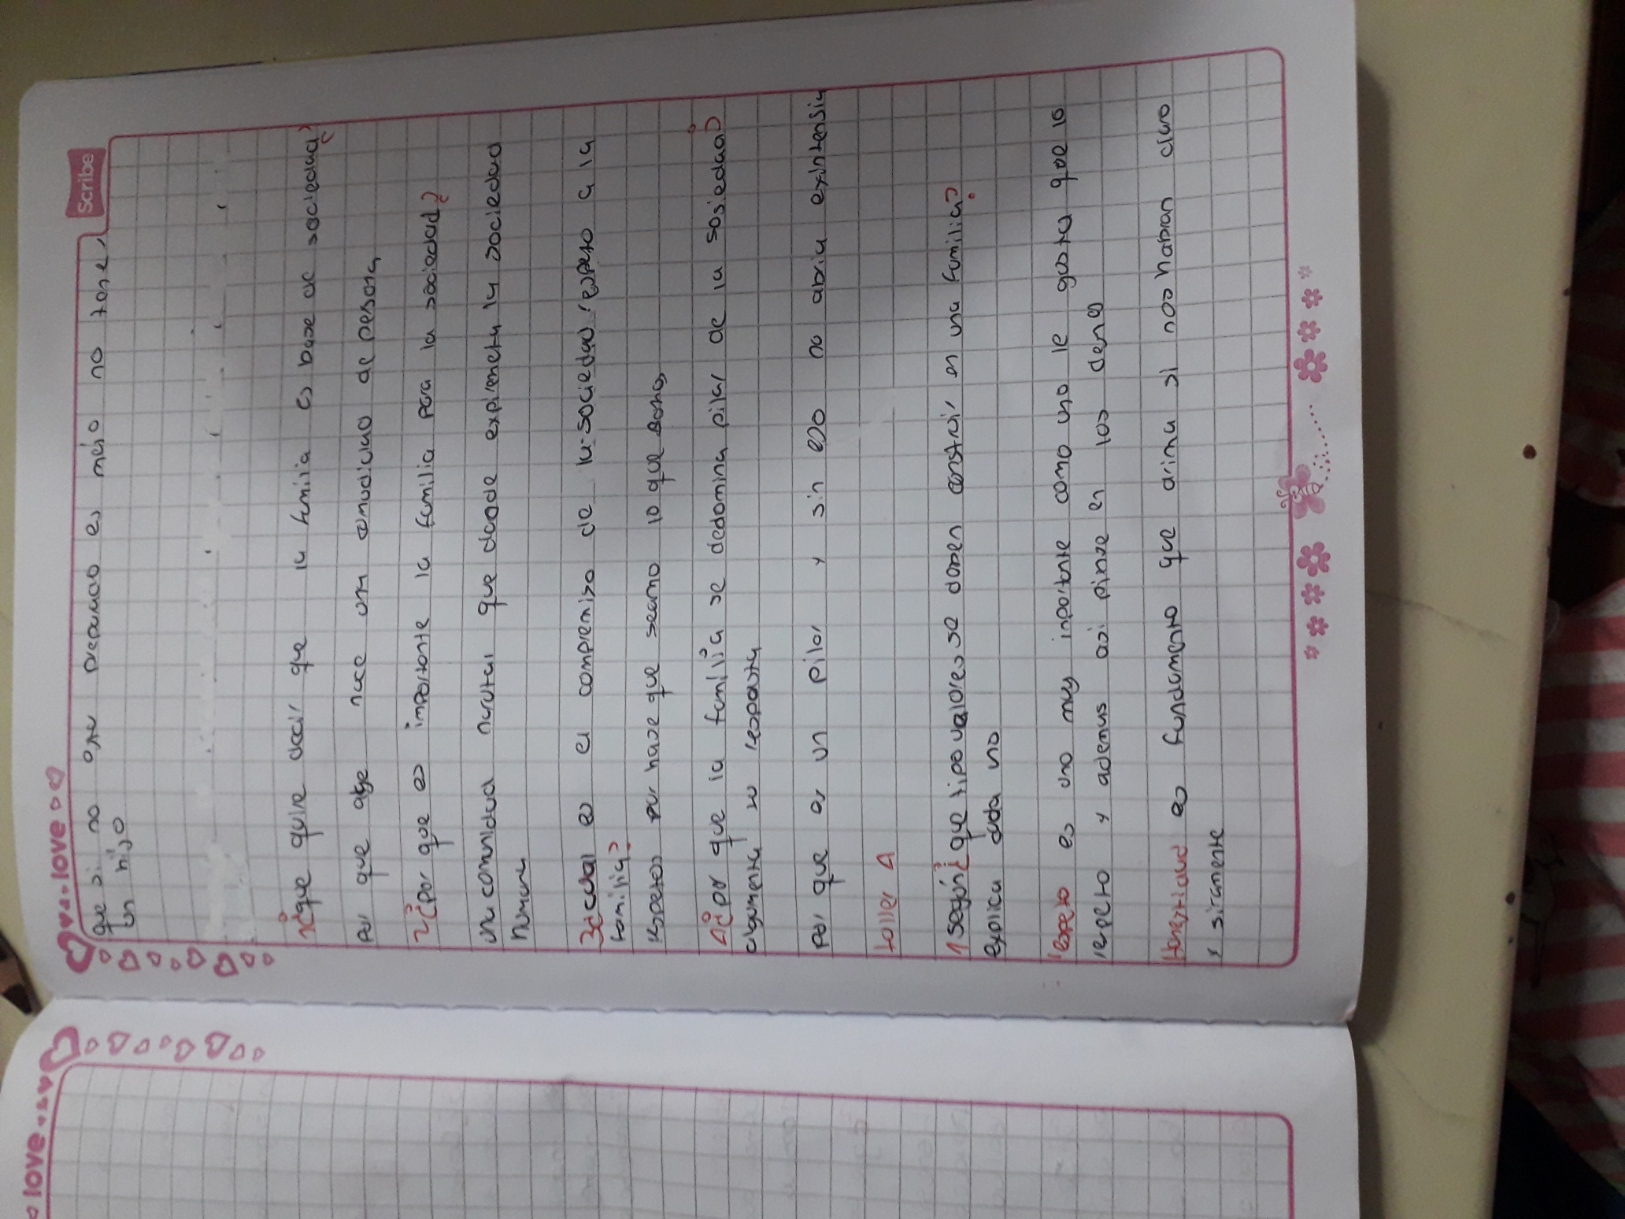 love
Scribe
que si no esta preparado es mejo no tener
un hijo
1 ¿que quire decir que la familia es base de sociedad?
Por que alge nace una comudidad de persona
2 ¿Por que es importante la familia para la sociedad?
una comunidad narutal que dosde expirimenta la sociedad
humana
3 ¿cual es el compremiso de la sociedad respeto a la
familia?
respetos por hace que seamo lo que somos
4 ¿por que la familia se dedomina pilar de la sosiedad?
algumenta su respuesta
Por que es un pilar y sin eso no abria exintensia
taller 4
1 Según ¿que tipo valores se daben constroir en una familia?
explica cada uno
respeto es uno muy inportante como uno le gusta que lo
repeten y ademas asi pinse en los demas
Honestidad es fundamento que arina si nos habran claro
y siramente
love